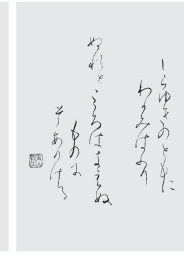 しらゆきのともに
わかみはふり
ぬれとこころはきえぬ
ものに
そありける